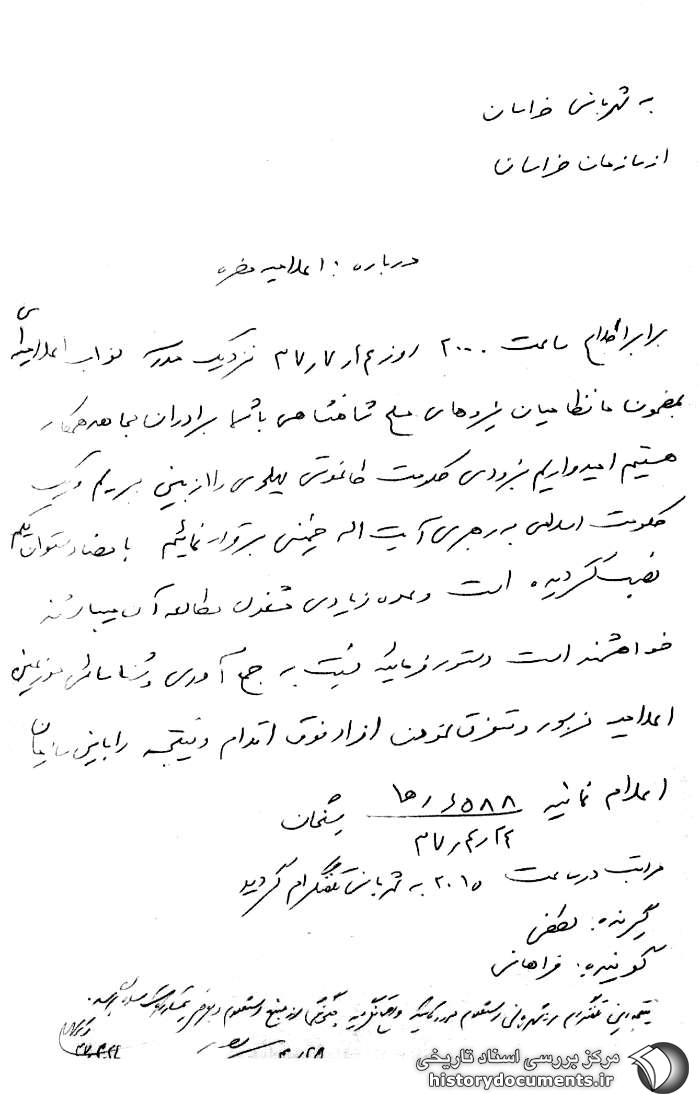 به شهربانی خراسان
از سازمان خراسان
درباره : اعلامیه مضره
برابر اطلاع ساعت ۲۰۰۰ روز نزدیک مدرسه نواب اعلامیه‌ای
بمضمون ما نظامیان نیروهای مسلح شاهنشاهی با شما برادران مجاهد همکار
هستیم امیدواریم بزودی حکومت طاغوتی پهلوی را از بین ببریم و یک
حکومت اسلامی به رهبری آیت اله خمینی برقرار نمائیم بامضا ستوان یکم
نصب گردیده است و عده زیادی مشغول مطالعه آن میباشند
خواهشمند است دستور فرمائید نسبت به جمع آوری و شناسائی موزعین
اعلامیه مزبور و متفرق نمودن افراد فوق اقدام و نتیجه را باین سازمان
اعلام نمایند ۶۵۸۸ / ه‍ ۱ شیخان
۳۷٫۴٫۲۴
مراتب در ساعت ۲۰۱۵ به شهربانی تلفنگرام گردید
گیرنده: لطفی
گوینده: فراهانی
۴٫۲۸
مرکز بررسی اسناد تاریخی
historydocuments.ir